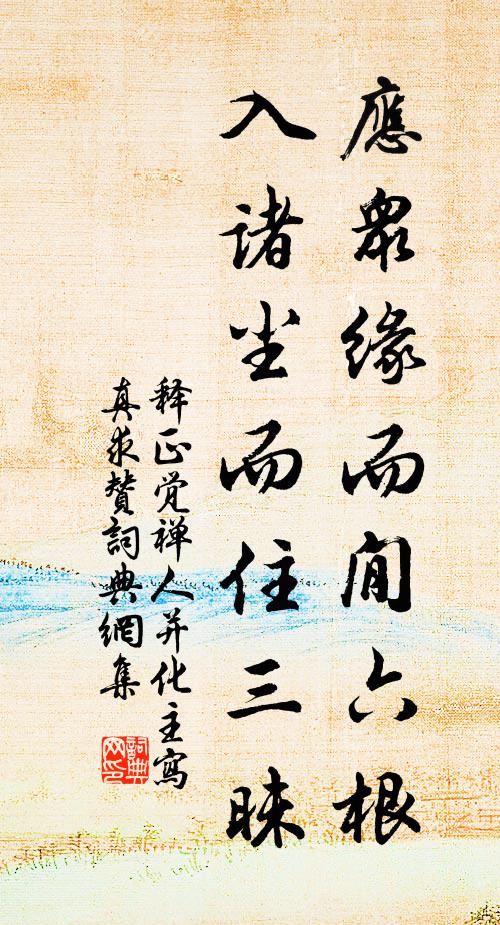 應眾緣而閒六根
入諸尘而住三昧
释正觉禅人并化主寫
真求賛詞典網集
詞典网印